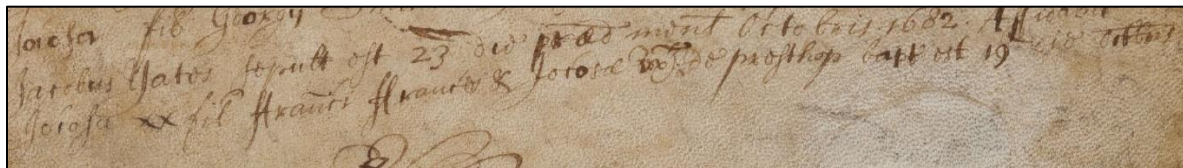 Jocosa fil Georgij
Jacobus Yates sepult est 23 die præd mens Octobris 1682. Affidavit
Jocosa xx fil ffrancis ffrances & Jocosæ ux de presthop bapt est 19 die octbris